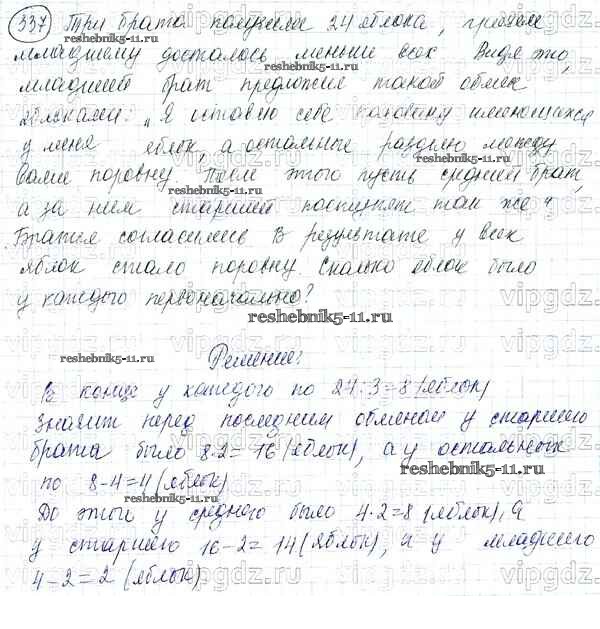 337 Три брата получили 24 яблока, причём
младшему досталось меньше всех Видя это,
младший брат предложил такой обмен
яблоками: „Я оставлю себе половину имеющихся
у меня яблок, а остальные разделю между
вами поровну. После этого пусть средний брат,
а за ним старший поступят так же “
Братья согласились В результате у всех
яблок стало поровну. Сколько яблок было
у каждого первоначально?
reshebnik5-11.ru
Решение:
В конце у каждого по 24:3=8 (яблок)
Значит перед последним обменом у старшего
брата было 8·2=16 (яблок), а у остальных
по 8-4=4 (яблок)
До этого у среднего было 4·2=8 (яблок), а
у старшего 16-2=14 (яблок), а у младшего
4-2=2 (яблок)